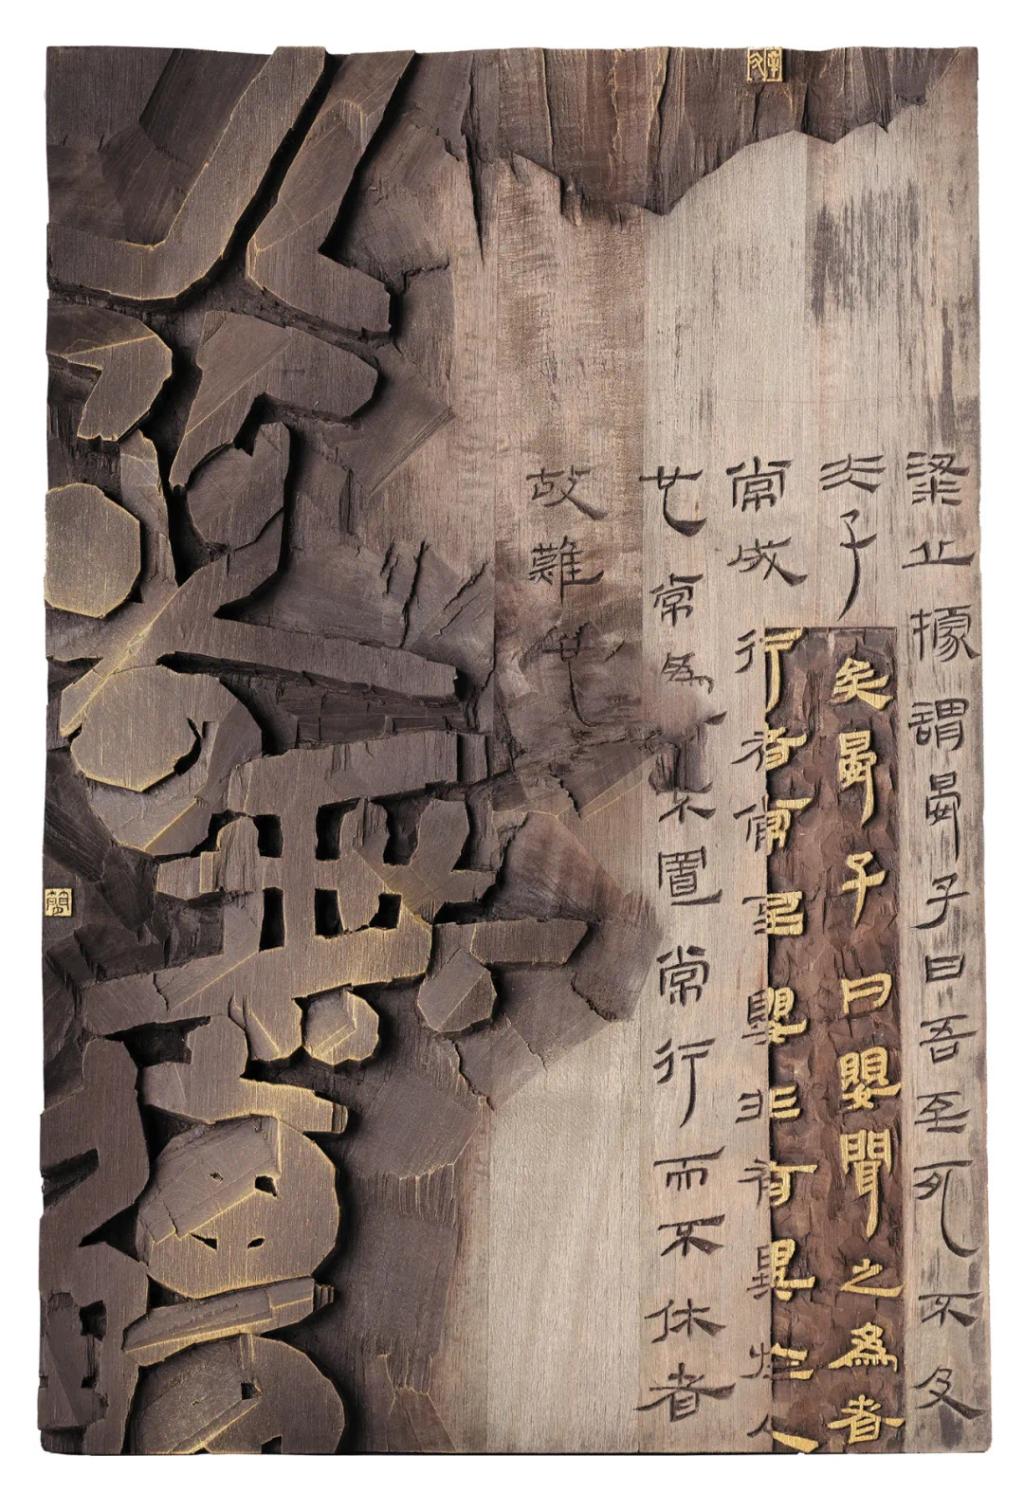 梁丘據謂晏子曰吾至死不及
夫子矣晏子曰嬰聞之為者
常成行者常至嬰非有異於人
也常為而不置常行而不休者
故難也
無